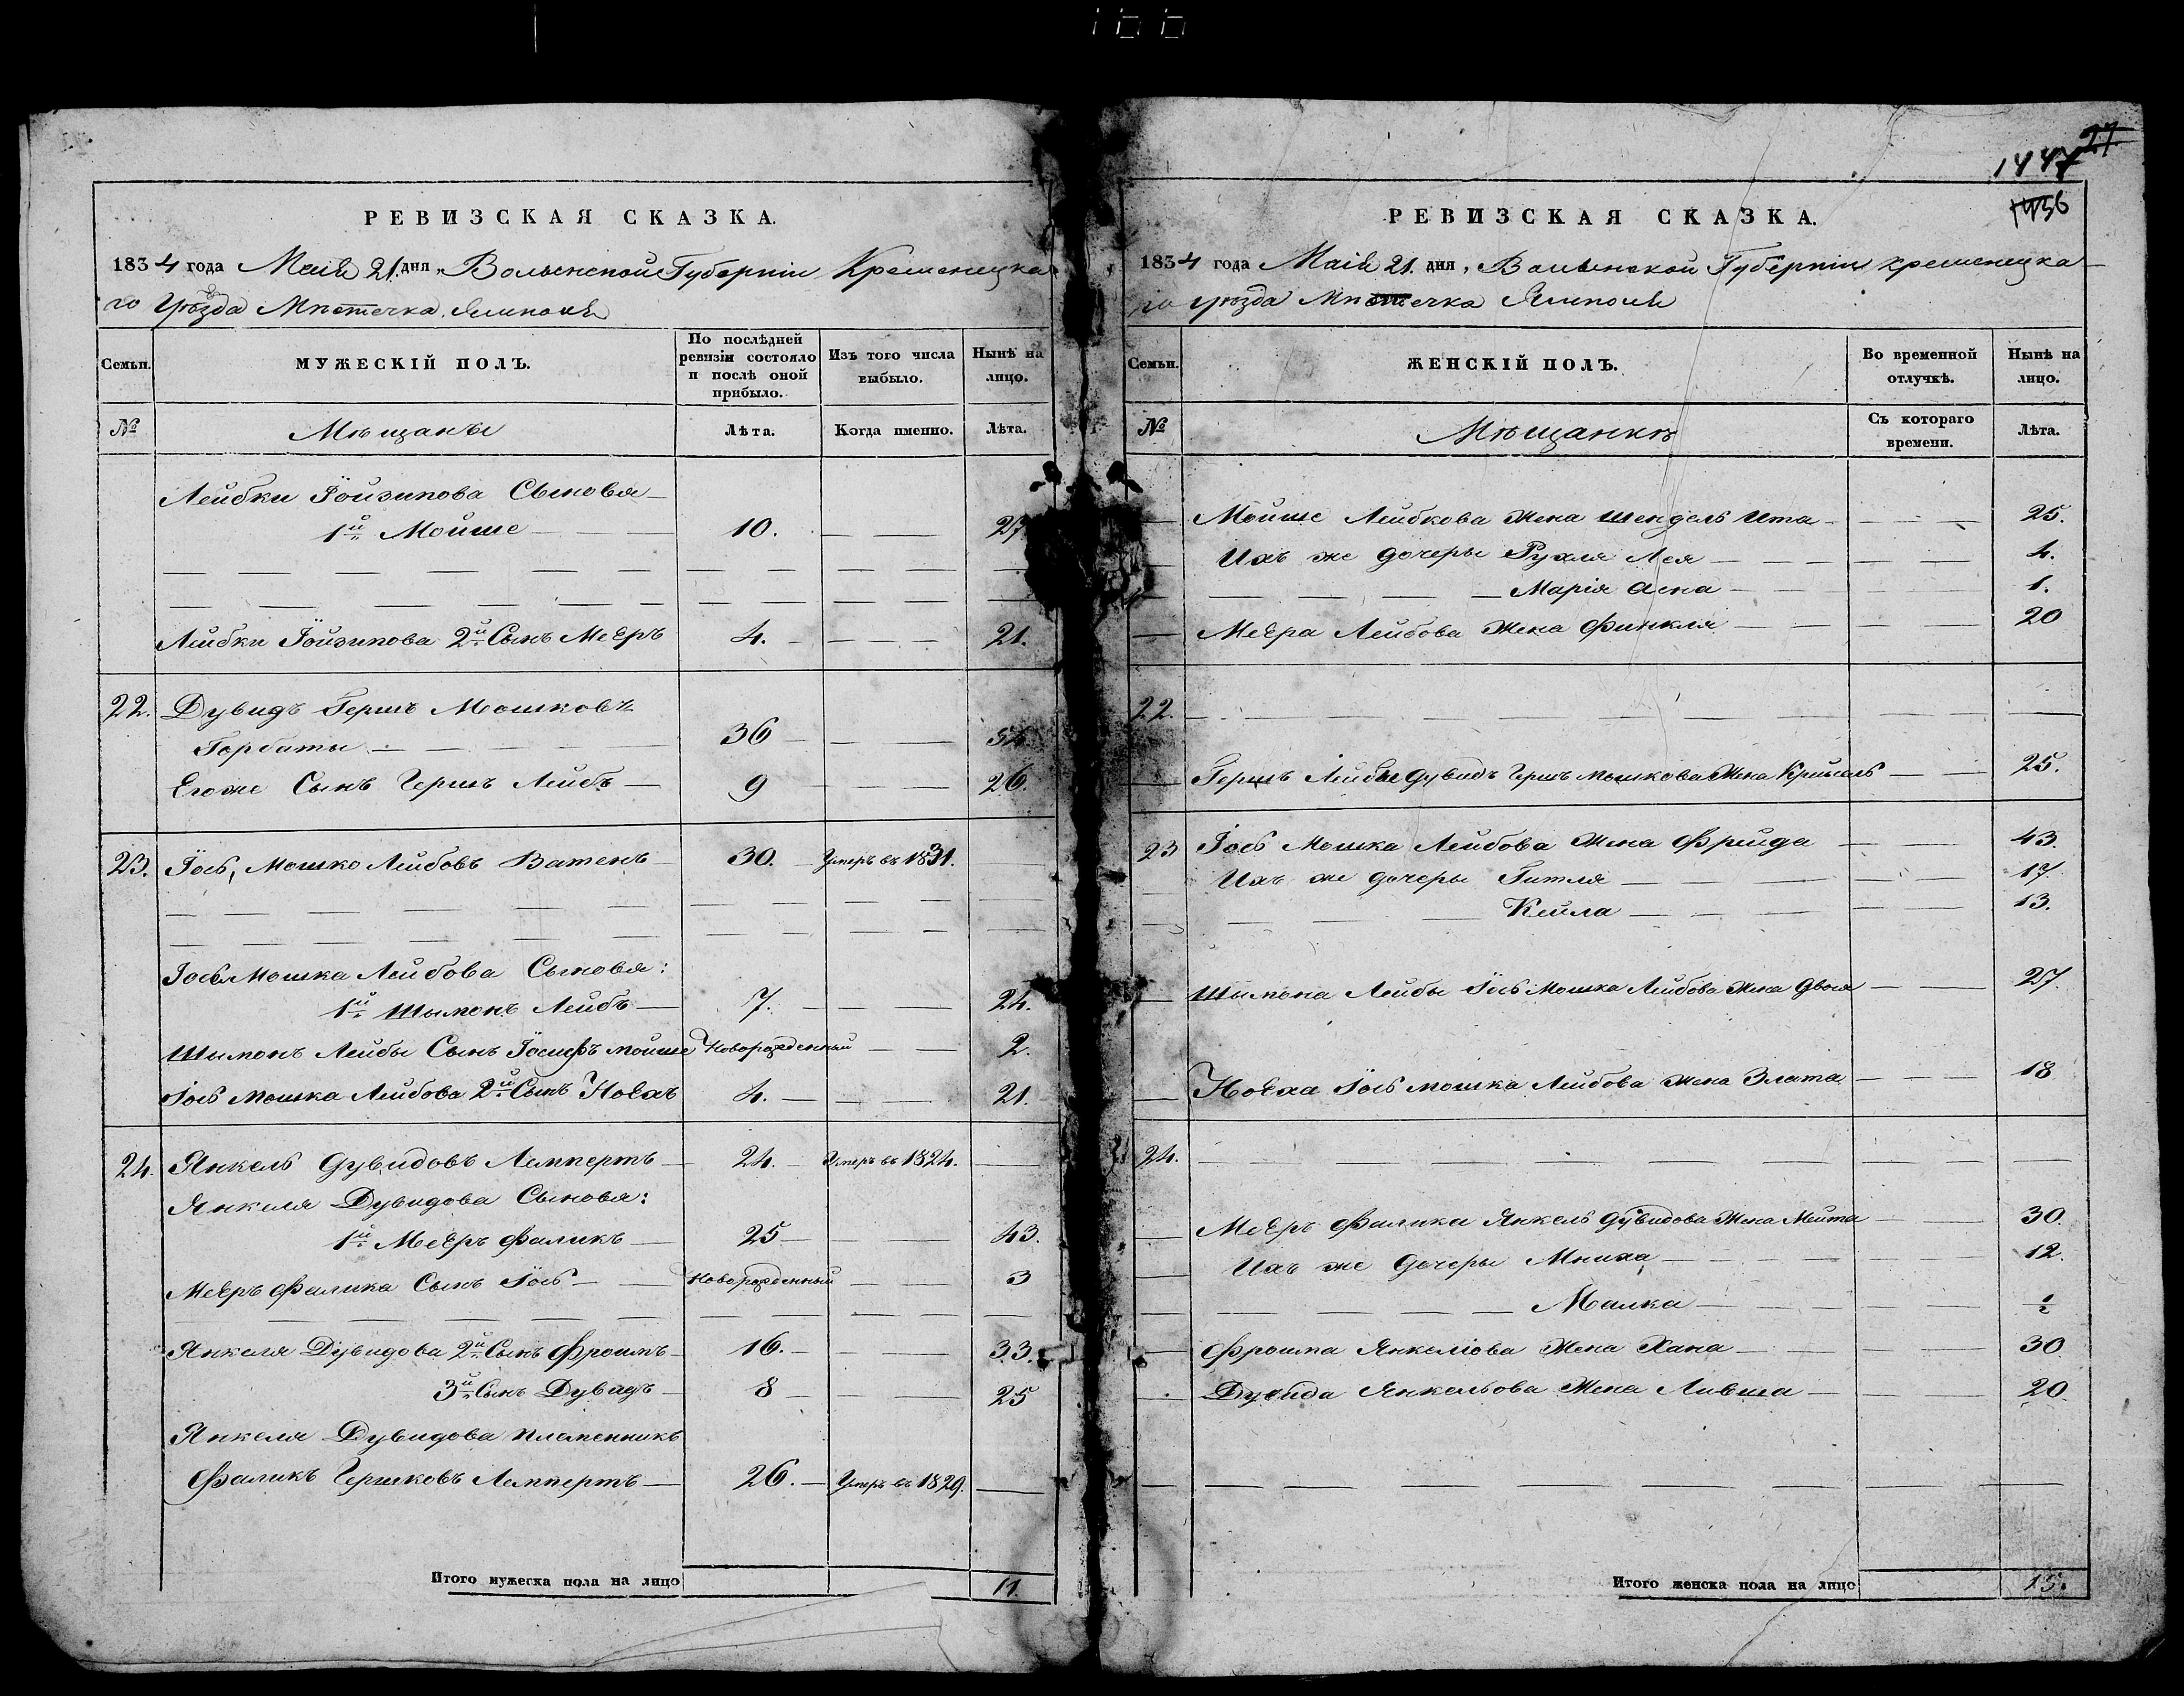 166
РЕВИЗСКАЯ СКАЗКА.
1834 года Маія 21. дня, Волынской Губерніи Кременецка
го Уѣзда Мѣстечка Ямполя
Семьи. МУЖЕСКІЙ ПОЛЪ. По послѣдней ревизіи состояло и послѣ оной прибыло. Изъ того числа выбыло. Нынѣ на лицо.
№ Мѣщаны Лѣта. Когда именно. Лѣта.
Лейбки Іойзипова Сыновья
1й Мойше 10. 27
Лейбки Іойзипова 2й Сынъ Мееръ 4. 21.
22. Дувидъ Гершъ Мошковъ
Горбаты 36
Егоже Сынъ Гершъ Лейбъ 9 26.
23. Іось, Мошко Лейбовъ Ватенъ 30. Умеръ въ 1831.
Іося Мошка Лейбова Сыновья:
1й Шымонъ Лейбъ 7. 24.
Шымонъ Лейбы Сынъ Іосифъ Мойше Новорожденный 2.
Іось Мошка Лейбова 2й Сынъ Ноехъ 4. 21.
24. Янкель Дувидовъ Лемпертъ 24. Умеръ въ 1824.
Янкеля Дувидова Сыновья:
1й Мееръ Фаликъ 25 43.
Мееръ Фалика Сынъ Іось Новорожденный 3
Янкеля Дувидова 2й Сынъ Фроимъ 16. 33.
3й Сынъ Дувидъ 8 25
Янкеля Дувидова племенникъ
Фаликъ Гершковъ Лемпертъ 26. Умеръ въ 1829.
Итого мужеска пола на лицо 11.
27
1447
1456
РЕВИЗСКАЯ СКАЗКА.
1834 года Маія 21. дня, Волынской Губерніи Кременецка
го Уѣзда Мѣстечка Ямполя
Семьи. ЖЕНСКІЙ ПОЛЪ. Во временной отлучкѣ. Нынѣ на лицо.
№ Мѣщанкѣ Съ котораго времени. Лѣта.
Мойше Лейбкова Жена Шендель Ита 25.
Ихъ же дочеры Рухля Лея 4.
Марія Асна 1.
Меера Лейбова Жена Финкля 20
22.
Гершъ Лейбы Дувидъ Гершъ Мошкова Жена 25.
23 Іось Мошка Лейбова Жена Фрейда 43.
Ихъ же дочеры Гитля 17.
Кейла 13.
Шымона Лейбы Іось Мошка Лейбова Жена Двося 27.
Ноеха Іось Мошка Лейбова Жена Злата 18
24.
Мееръ Фалика Янкель Дувидова Жена Мейта 30.
Ихъ же дочеры Мниха 12.
Малка ½
Фроима Янкеліова Жена Хана 30
Дувида Янкельова Жена Ливша 20.
Итого женска пола на лицо 15.